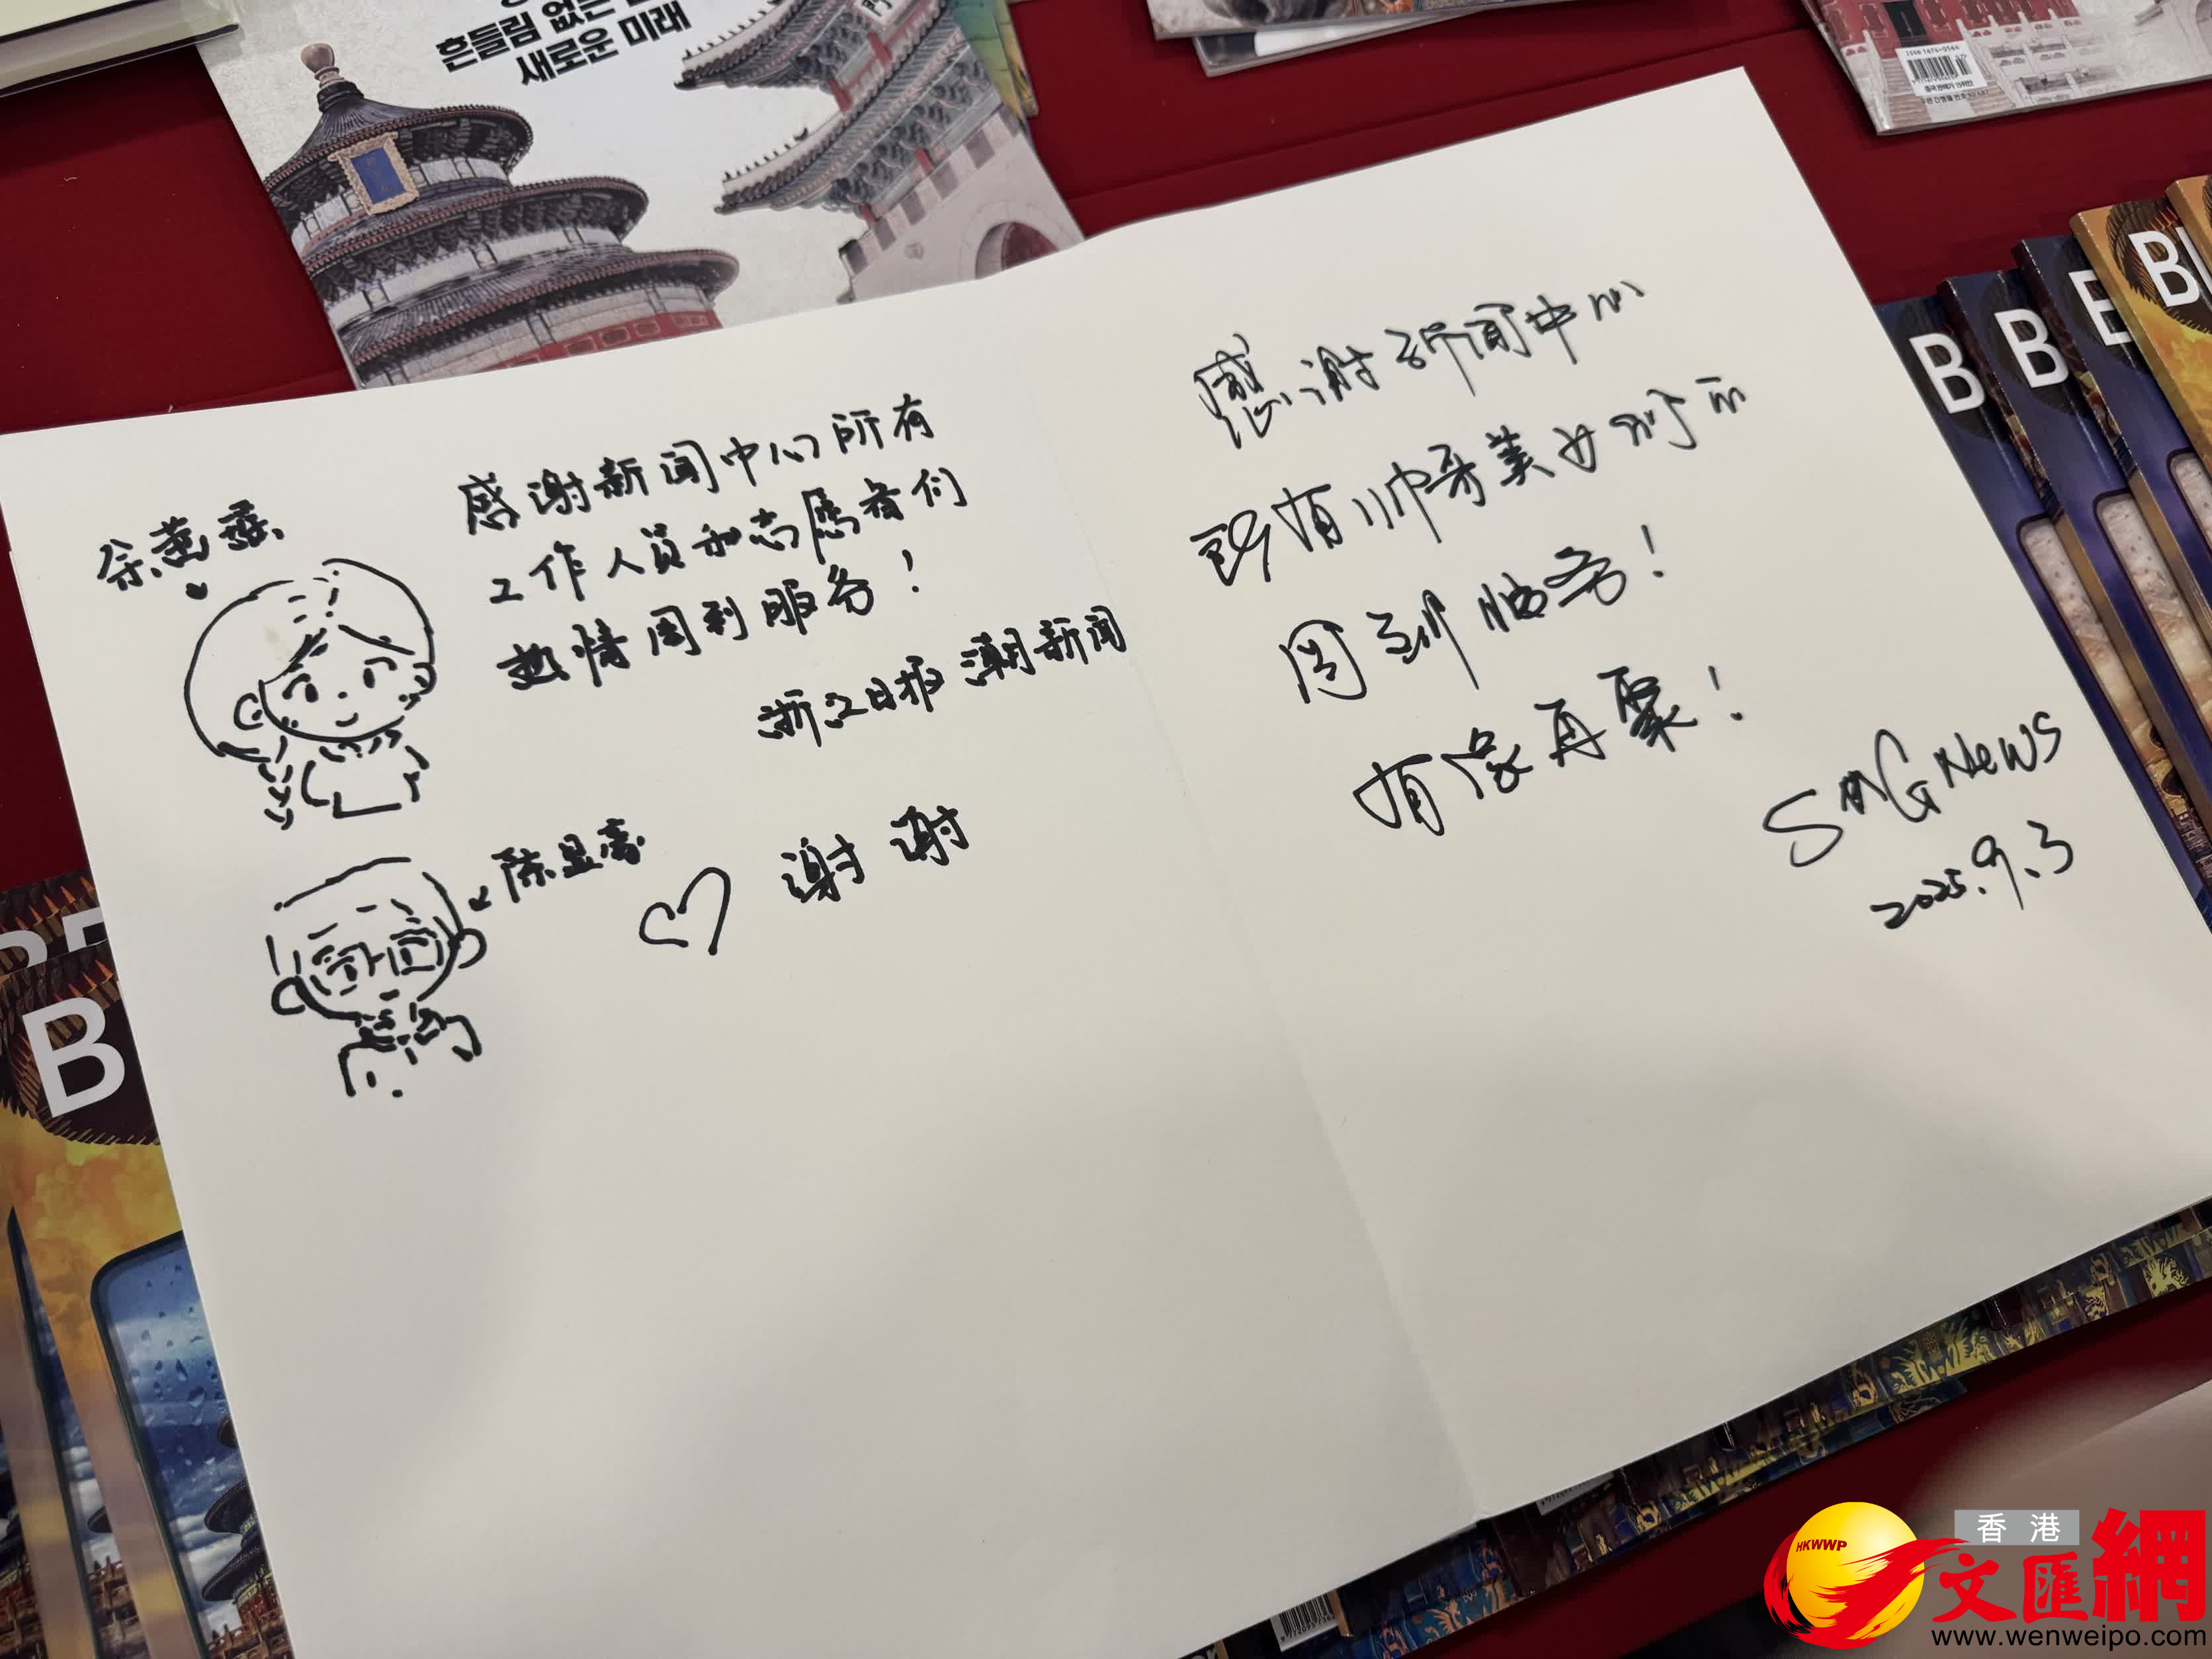 흔들림 없는
새로운 미래
感谢新闻中心所有
工作人员和志愿者们
热情周到服务！
浙江日报 潮新闻
余燕
陈显
谢谢
感谢新闻中心
所有帅哥美女们
周到服务！
有缘再聚！
SMGNEWS
2025.9.3
B
B
B
B
HKWWP
香港
文匯網
www.wenweipo.com